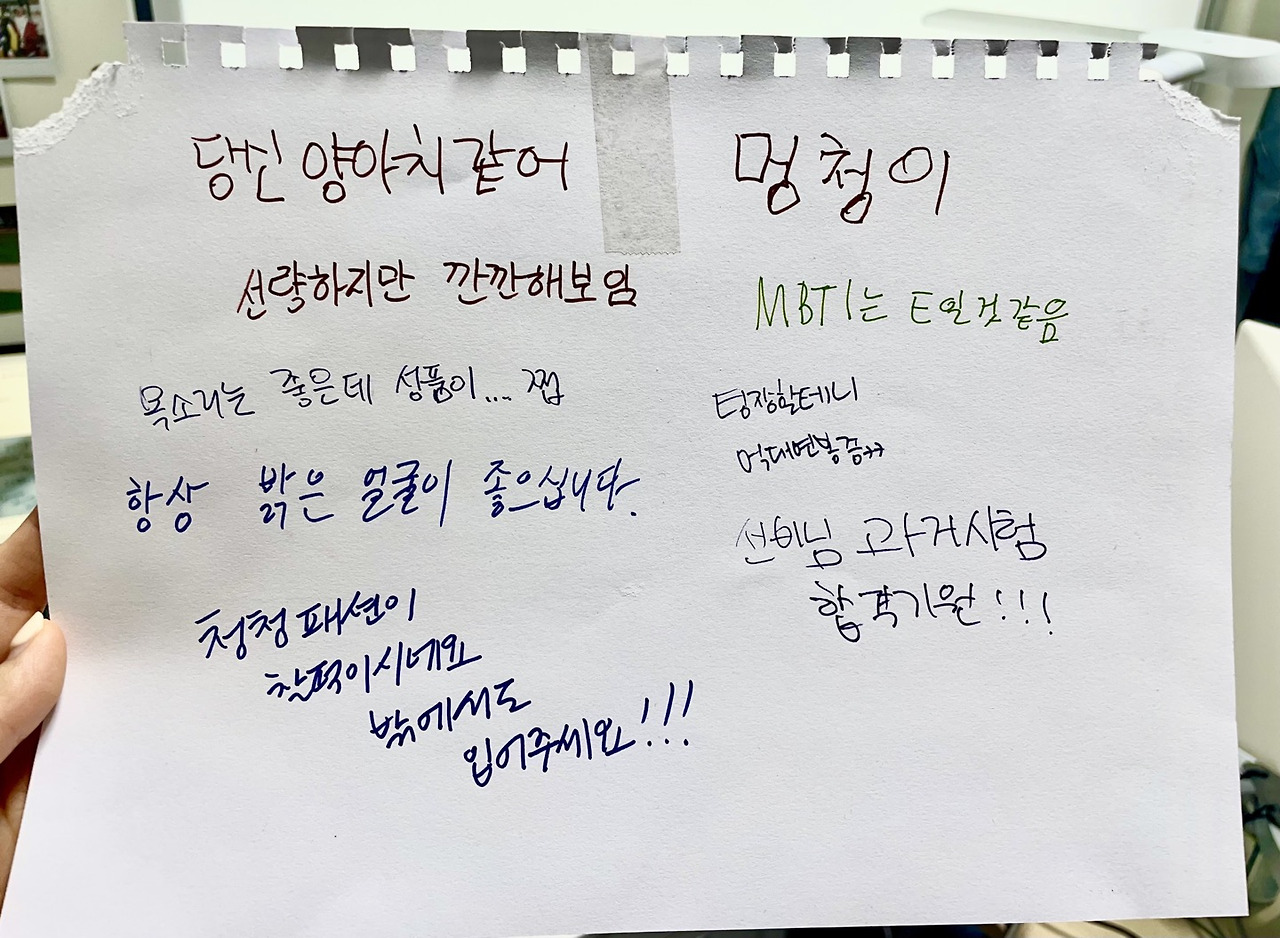 당신 양아치 같어
선량하지만 깐깐해보임
목소리는 좋은데 성품이.... 쩝
항상 밝은 얼굴이 좋으십니다.
청청 패션이
찰떡이시네요
밖에서도
입어주세요!!!
멍청이
MBTI는 E일것 같음
팀장할테니
억대연봉증
선비님 과거시험
합격기원!!!